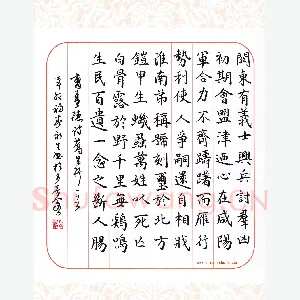 關東有義士興兵討群凶
初期會盟津迺心在咸陽
軍合力不齊躊躇而雁行
勢利使人爭嗣還自相戕
淮南弟稱號刻璽於北方
鎧甲生蟣蝨萬姓以死亡
白骨露於野千里無鷄鳴
生民百遺一念之斷人腸
曹孟德詩蒿里行